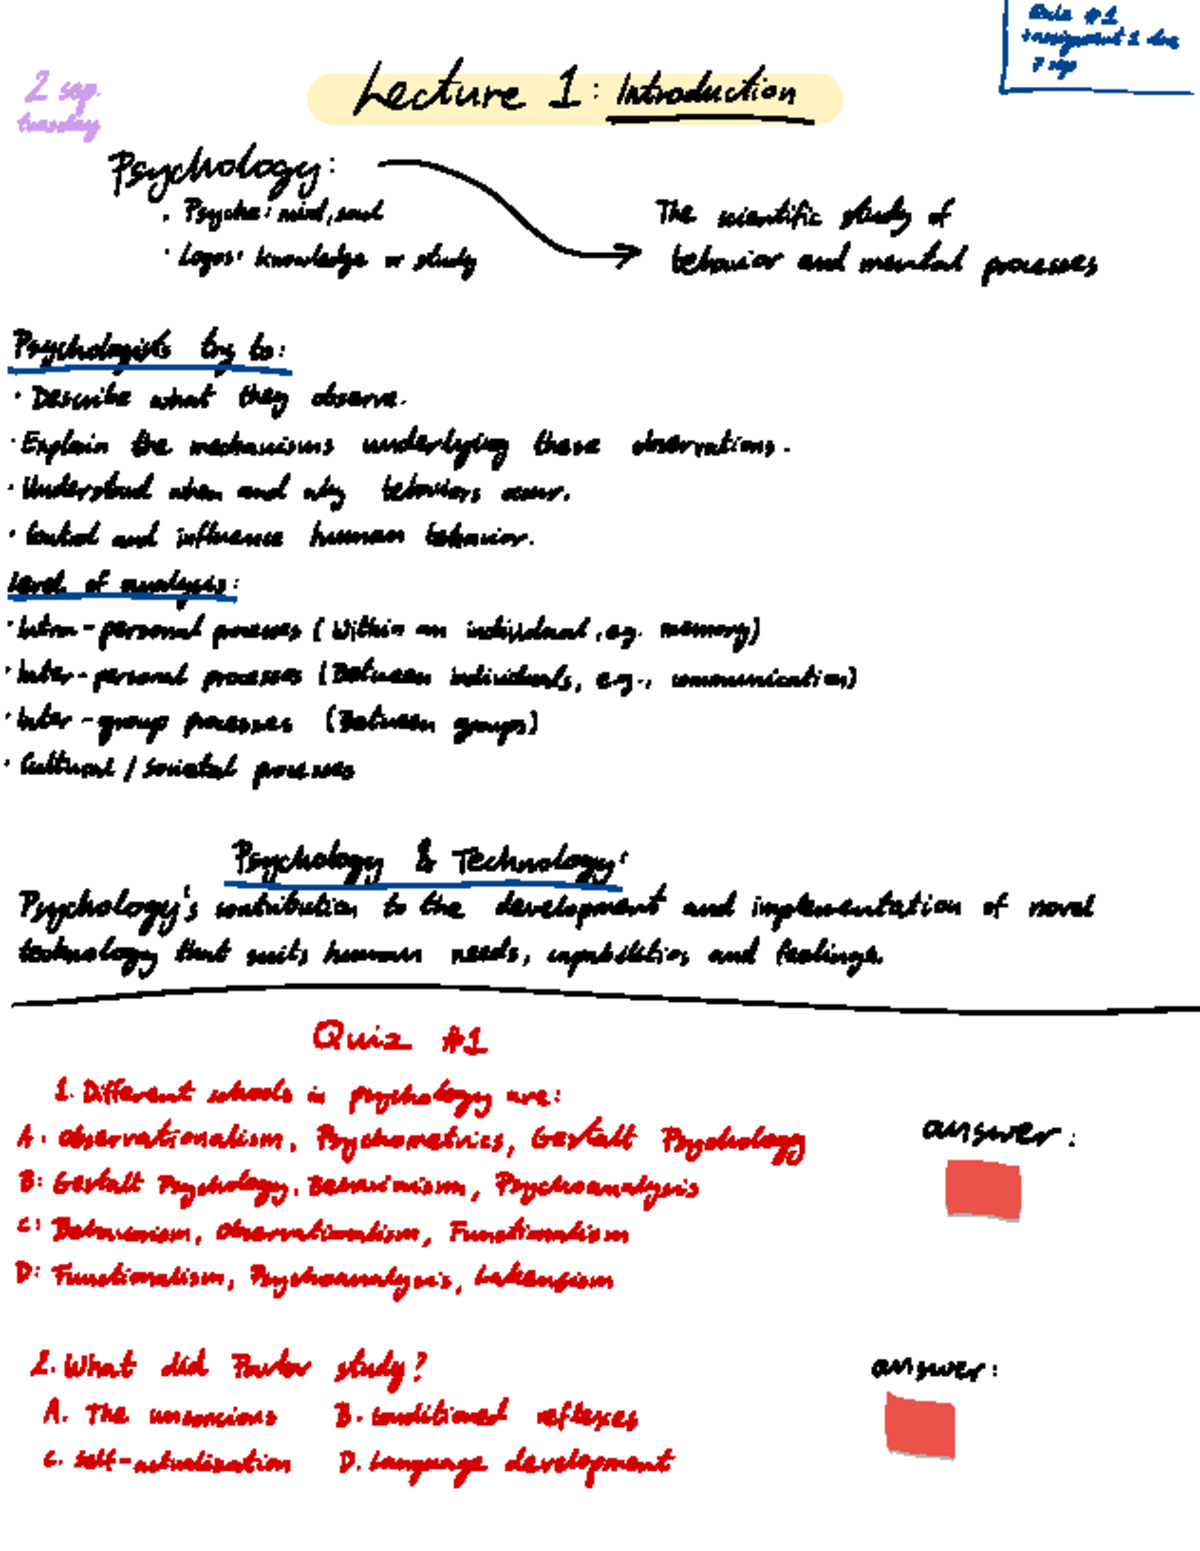 Quiz #1
+assignment 1 due
7 sep
2 sep.
tuesday
Lecture 1: Introduction
Psychology:
· Psyche: mind, soul
· Logos: knowledge or study
The scientific study of
behavior and mental processes
Psychologists try to:
· Describe what they observe.
· Explain the mechanisms underlying these observations.
· Understand when and why behaviors occur.
· Control and influence human behavior.
Level of analysis:
· Intra-personal processes (Within an individual, e.g. memory)
· Inter-personal processes (Between individuals, e.g., communication)
· Inter-group processes (Between groups)
· Cultural / societal processes
Psychology & Technology:
Psychology's contribution to the development and implementation of novel
technology that suits human needs, capabilities and feelings.
Quiz #1
1. Different schools in psychology are:
A: observationalism, Psychometrics, Gestalt Psychology
B: Gestalt Psychology, Behaviorism, Psychoanalysis
C: Behaviorism, observationalism, Functionalism
D: Functionalism, Psychoanalysis,
answer:
2. What did Pavlov study?
A. The unconcious B. conditioned reflexes
C. self-actualization D. Language development
answer: